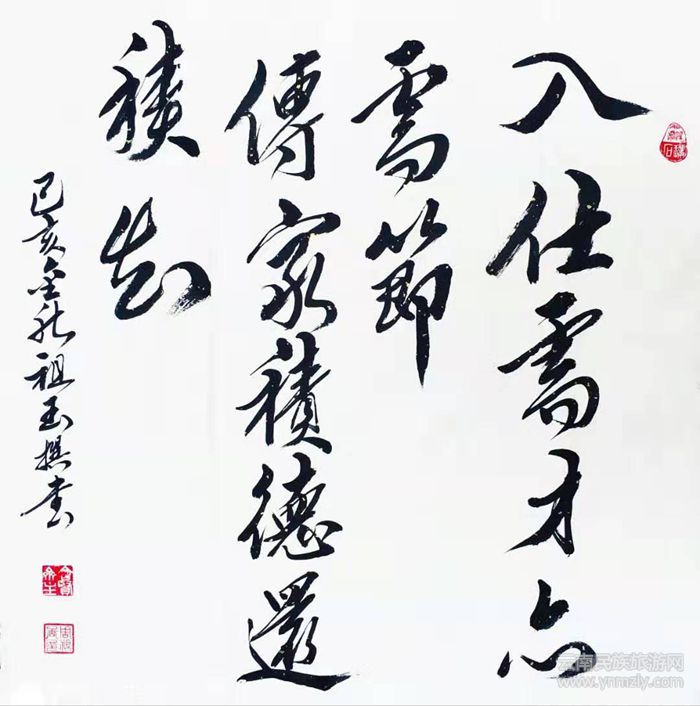 入仕需才亦
需節
傳家積德還
積知
己亥金秋祖玉撰書
云南民族旅游网
www.ynmzly.com